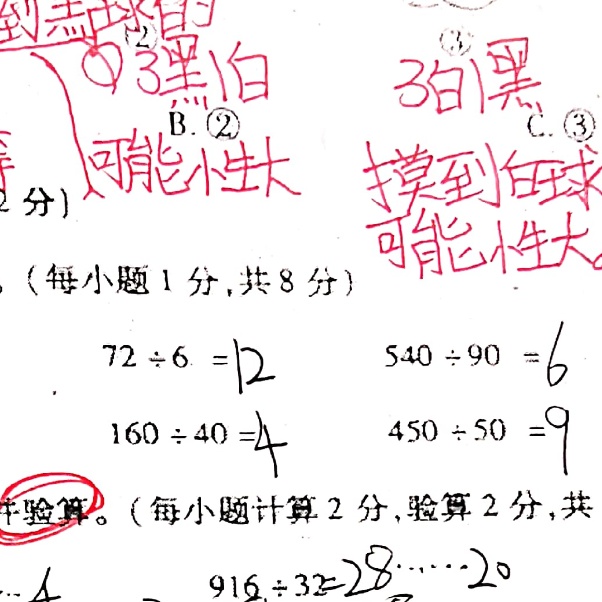 到黑球的
② ③
3黑1白 3白1黑
B. ② C. ③
可能性大 摸到白球
可能性大。
2 分)
。(每小题 1 分,共 8 分)
72 ÷ 6 = 12 540 ÷ 90 = 6
160 ÷ 40 = 4 450 ÷ 50 = 9
并验算。(每小题计算 2 分,验算 2 分,共
…4 916 ÷ 32 = 28……20